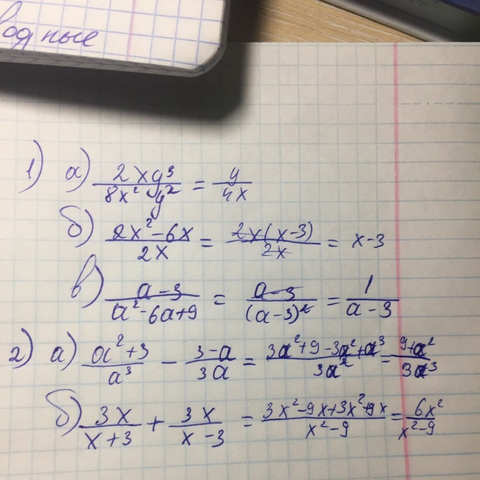 водные
1) а) 2xy³/8x²y² = y/4x
б) 2x²-6x/2x = 2x(x-3)/2x = x-3
в) a-3/a²-6a+9 = a-3/(a-3)² = 1/a-3
2) а) a²+3/a³ - 3-a/3a = 3a²+9-3a²+a³/3a² = 9+a²/3a³
б) 3x/x+3 + 3x/x-3 = 3x²-9x+3x²+9x/x²-9 = 6x²/x²-9